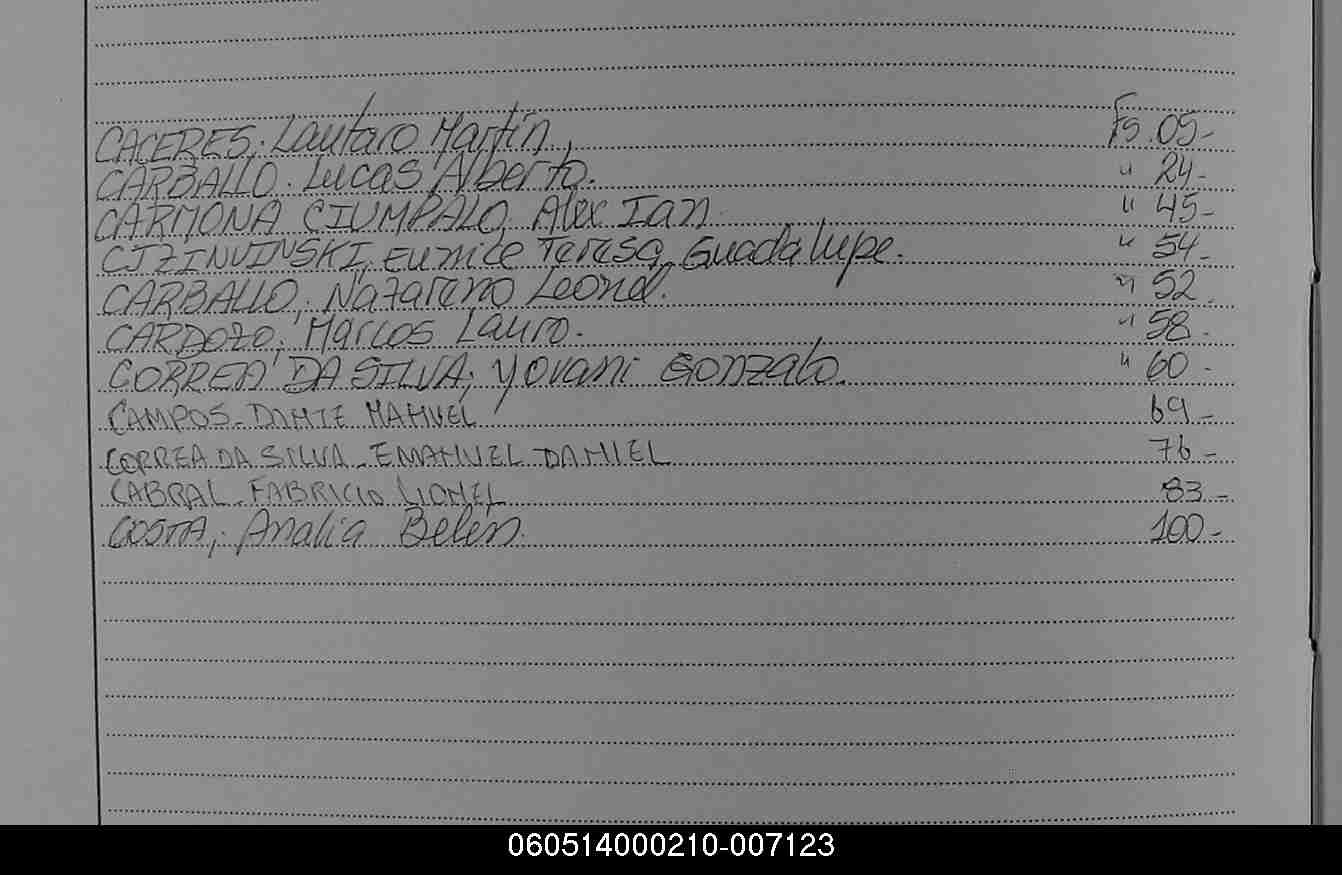 CACERES, Lautaro Martín, Fs. 05-
CARBALLO, Lucas Alberto. " 24-
CARMONA CIUMPALO, Alex Ian. " 45-
CIZINVINSKI, Eunice Teresa, Guadalupe. " 54-
CARBALLO, Nazareno Leonel. " 52.
CARDOZO, Marcos Lauro. " 58-
CORREA DA SILVA, Yovani Gonzalo. " 60-
CAMPOS- DANTE MANUEL 69-
CORREA DA SILVA- EMANUEL DANIEL 76-
CABRAL- FABRICIO LIONEL 83-
COSTA, Analia Belén. 100-
060514000210-007123